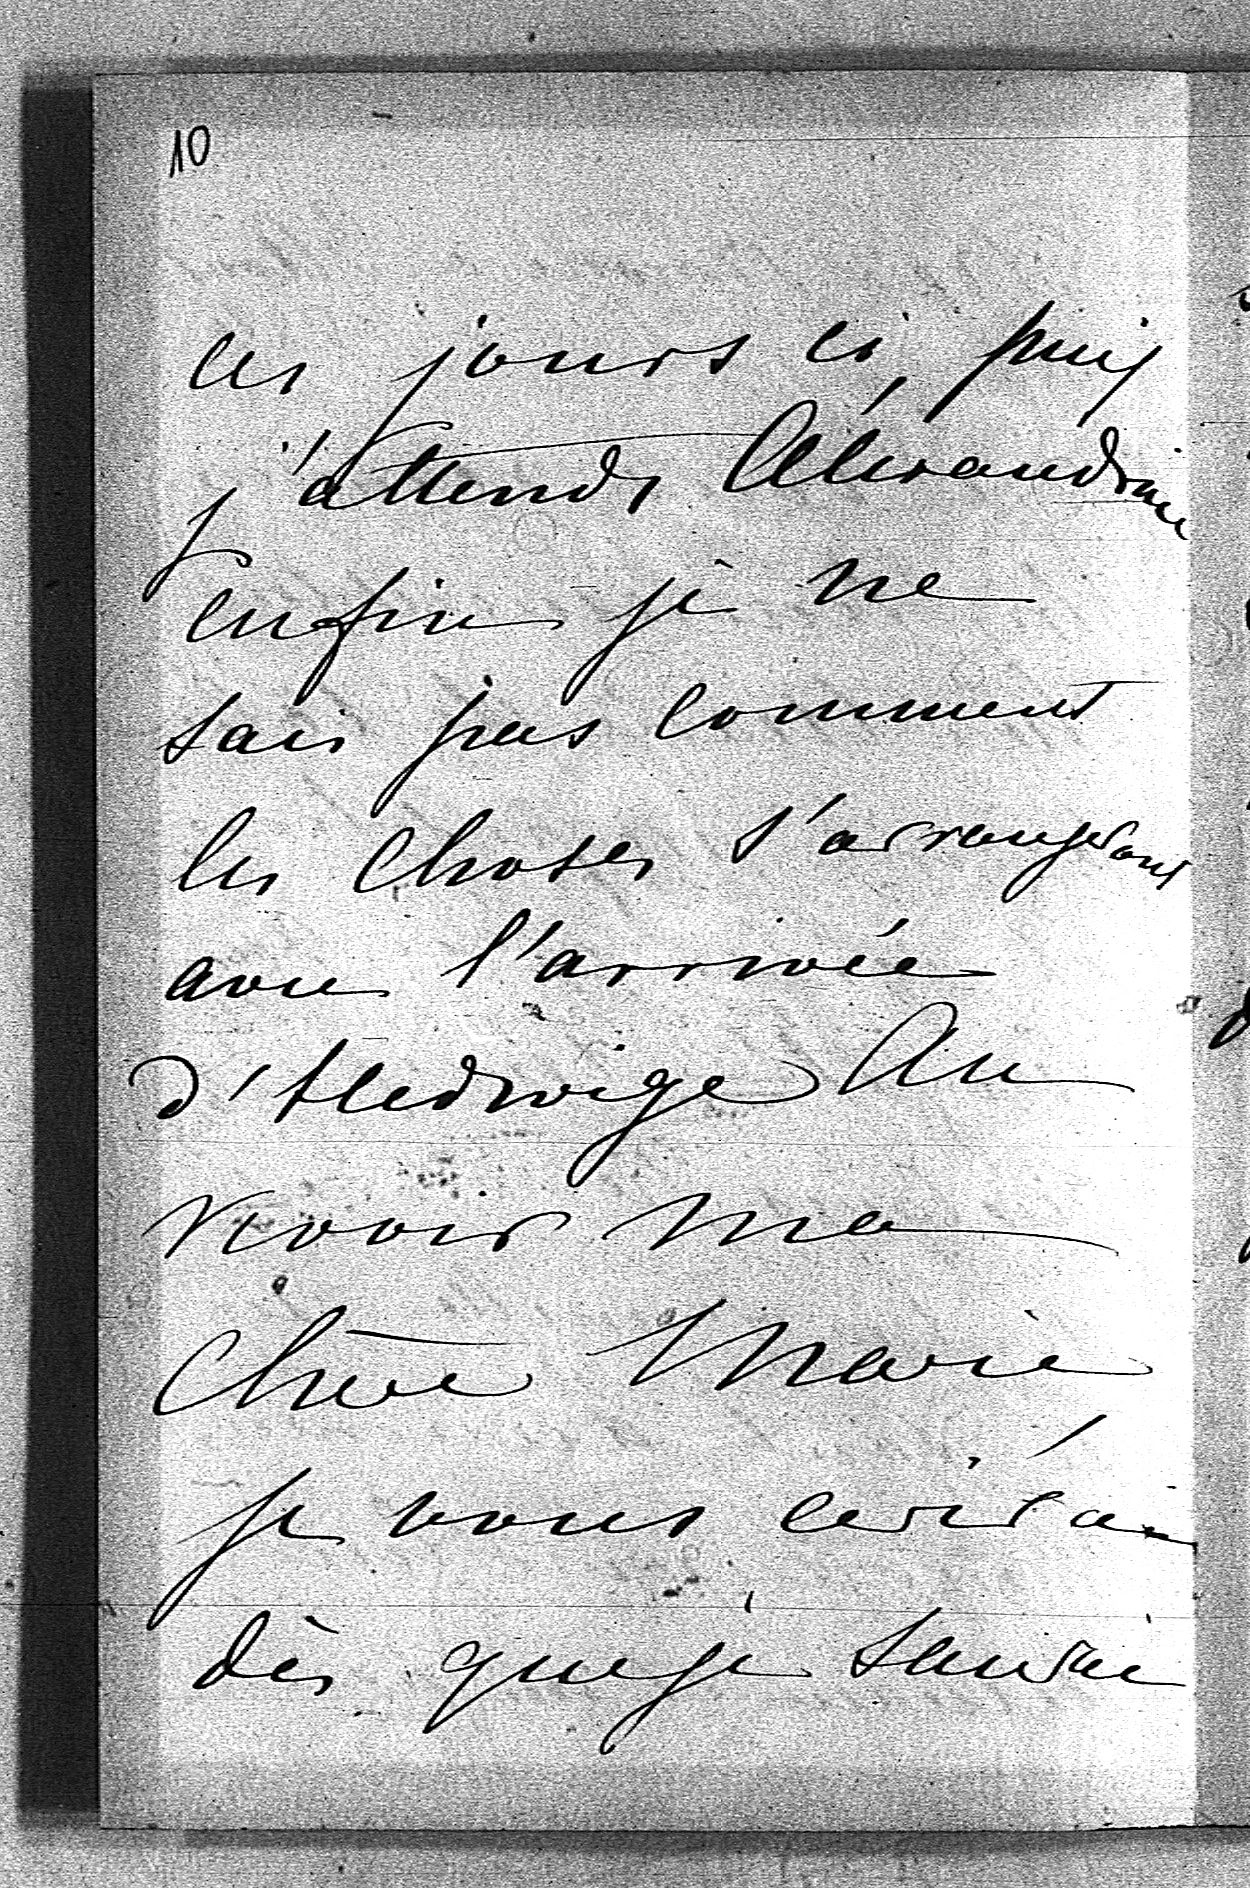 10
ces jours ci, puis
j'attends Aléxandrine
enfin je ne
sais pas comment
les choses s'arrangeront
avec l'arrivée
d'Hedwige Au
revoir ma
chère Marie
je vous ecrirai
dès que je saurai